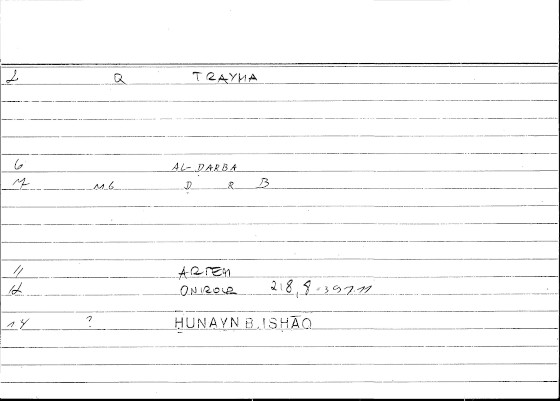 2 Q TRAYHA
6 AL-DARBA
7 MG Ḍ R B
11 ARTEM
12 ONIROCR 218,8-
14 ? ḤUNAYN B. ISḤĀQ